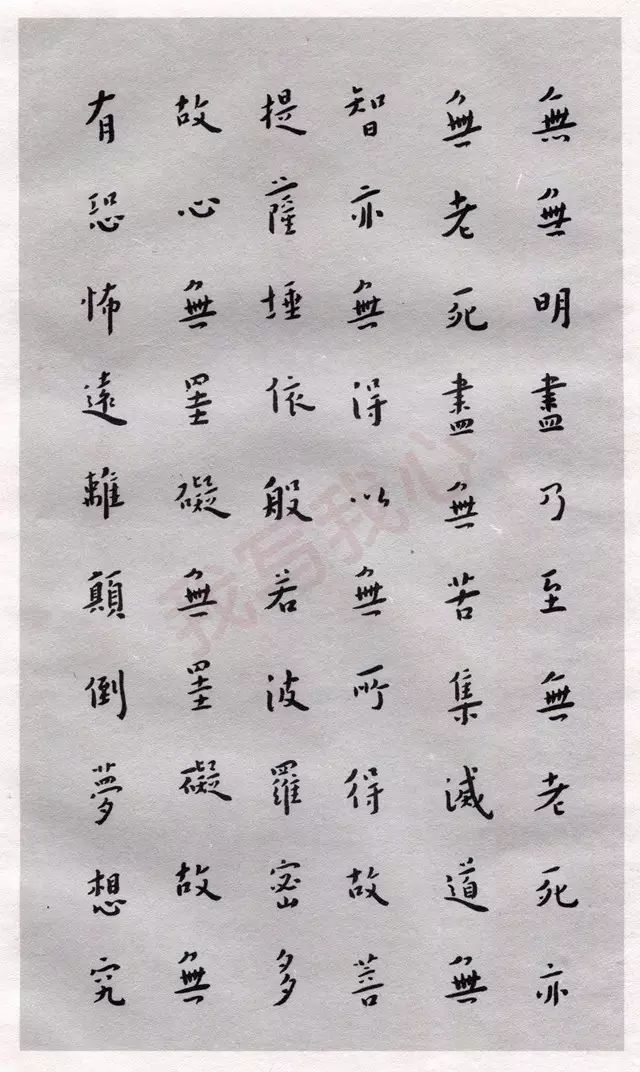 無無明盡乃至無老死亦
無老死盡無苦集滅道無
智亦無得以無所得故菩
提薩埵依般若波羅蜜多
故心無罣礙無罣礙故無
有恐怖遠離顛倒夢想究
我写我心